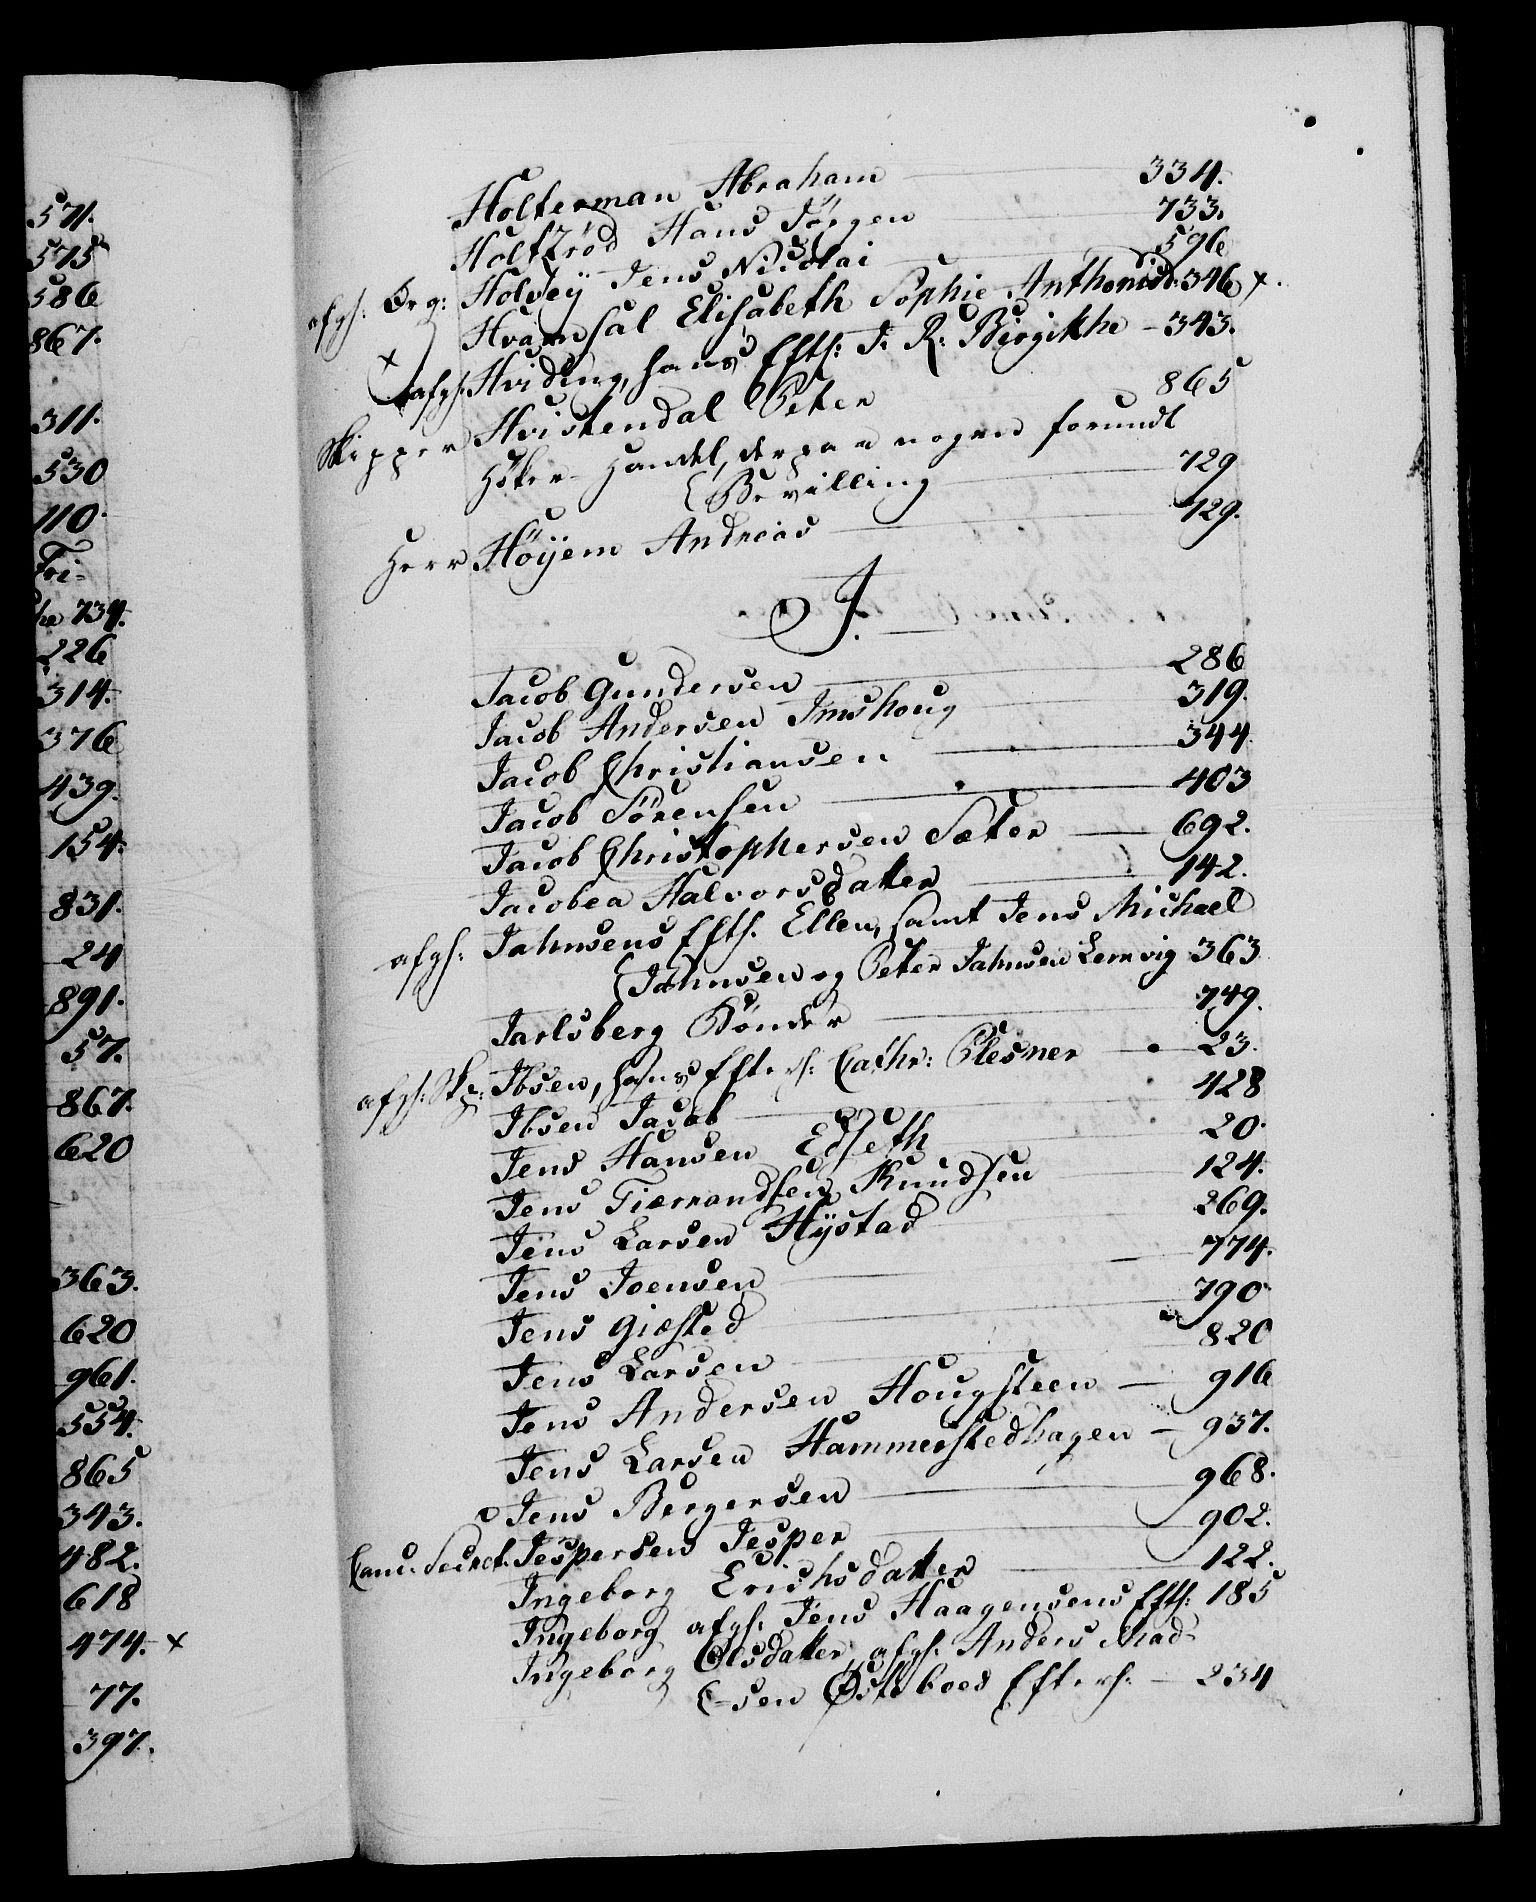 571.
575
586
867.
311.
530
110.
Fri-
he 734.
226
314.
376
439.
154.
831.
24
891.
57.
867.
620
363.
620
961.
554.
865
343.
482.
618
474. x
77.
397.
Holterman Abraham 334.
Holtzröd Hans Jörgen 733.
Holvey Jens Nicolai 596
afgh: Org: Hvamsal Elisabeth Sophie Anthonisd. 346 x.
x afgh. Hviding, hans Efth: J. R. Birgithe - 343.
Skipper Hvistendal Peter 865
Höker-Handel, derpaa nogen forundt
Bevilling 729
Herr Höyem Andreas 129.
J.
Jacob Gundersen 286
Jacob Andersen Imshoug 319.
Jacob Christiansen 344
Jacob Sörensen 403
Jacob Christophersen Sæter 692.
Jacobea Halvorsdatter 142.
afgh: Jahnsens Efth. Ellen, samt Jens Michael
Jahnsen og Peter Jahnsen Lemvig 363
Jarlsberg Bönder 749.
afgh: Skp: Ibsen, hans Efterh: Cathr: Plesner 23.
Ibsen Jacob 428
Jens Hansen Edseth 20.
Jens Tierrandsen Knudsen 124.
Jens Larsen Hystad 269.
Jens Joensen 774.
Jens Giæsted 790
Jens Larsen 820
Jens Andersen Hougsteen 916
Jens Larsen Hammerstedhagen - 937.
Jens Bergersen 968.
Canc. Secret. Jespersen Jesper 902.
Ingeborg Erichsdatter 122.
Ingeborg afgh. Jens Haagensens Efth: 185
Ingeborg Olsdatter, afgh. Anders Mad-
-sen Östeboes Efterh. - 234